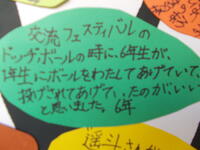 交流フェスティバルの
ドッヂボールの時に、6年生が、
1年生にボールをわたしてあげていて、
投げされてあげていたのがいい
と思いました。6年
遥斗さんが